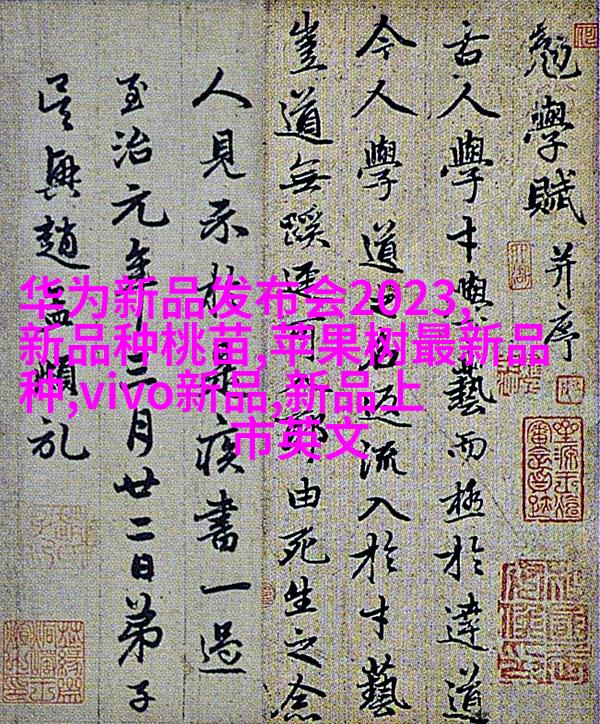 勉學賦 并序
古人學才與藝而極於達道
今人學道名流入於才藝
豈道無蹊由死生之念
人見示疾書一過
至治元年三月廿二日弟子
吳興趙孟頫
华为新品发布会2023,
新品种桃苗,苹果树最新品
种,vivo新品,新品上
市英文